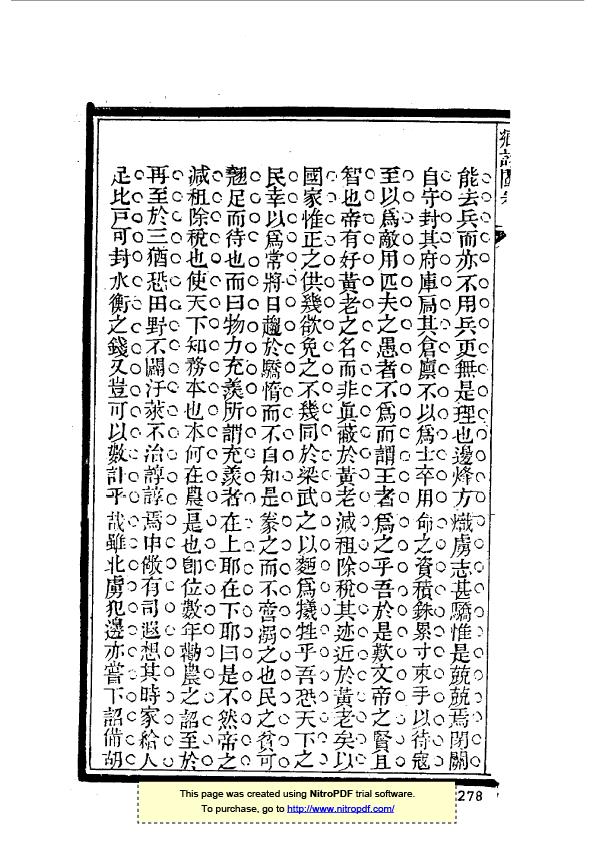 能去兵而亦不用兵更無是理也邊烽方熾虜志甚驕惟是兢兢焉閉關
自守封其府庫扃其倉廩不以爲士卒用命之資積銖累寸束手以待寇
至以爲敵用匹夫之愚者不爲而謂王者爲之乎吾於是歎文帝之賢且
智也帝有好黃老之名而非眞蔽於黃老減租除稅其迹近於黃老矣以
國家惟正之供幾欲免之不幾同於梁武之以麵爲犧牲乎吾恐天下之
民幸以爲常將日趨於驕惰而不自知是豢之而不啻溺之也民之貧可
翹足而待也而曰物力充羨所謂充羨者在上耶在下耶曰是不然帝之
減租除稅也使天下知務本也本何在農是也卽位數年勸農之詔至於
再至於三猶恐田野不闢汙萊不治諄諄焉申儆有司遐想其時家給人
足比戶可封水衡之錢又豈可以數計乎哉雖北虜犯邊亦嘗下詔備胡
This page was created using NitroPDF trial software.
To purchase, go to http://www.nitropdf.com/
278